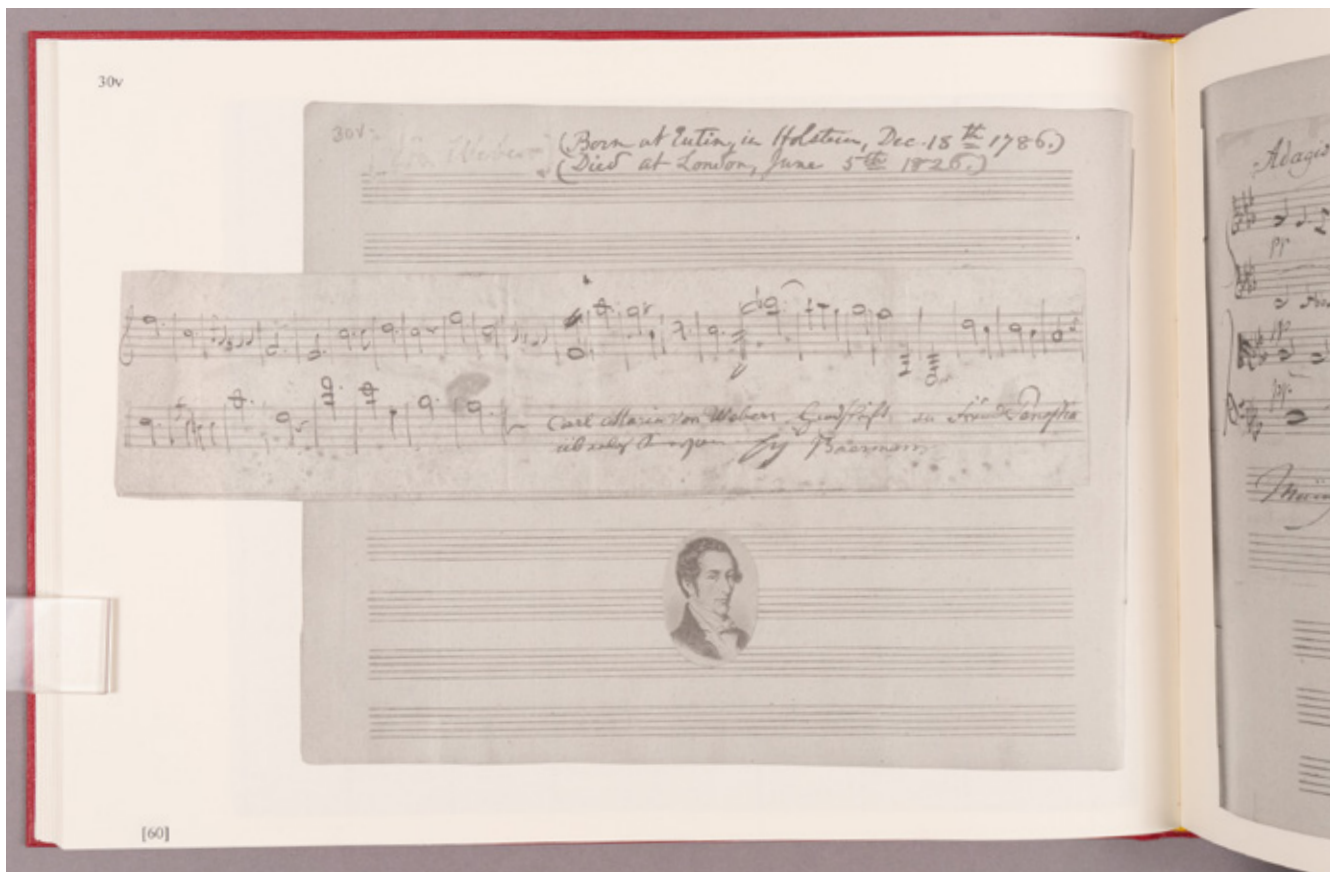 30v
30v. von Weber
(Born at Eutin, in Holstein, Dec. 18th 1786.)
(Died at London, June 5th 1826.)
Carl Maria von Webers Handschrift
Baermann
[60]
Adagio
pp
pp
pp